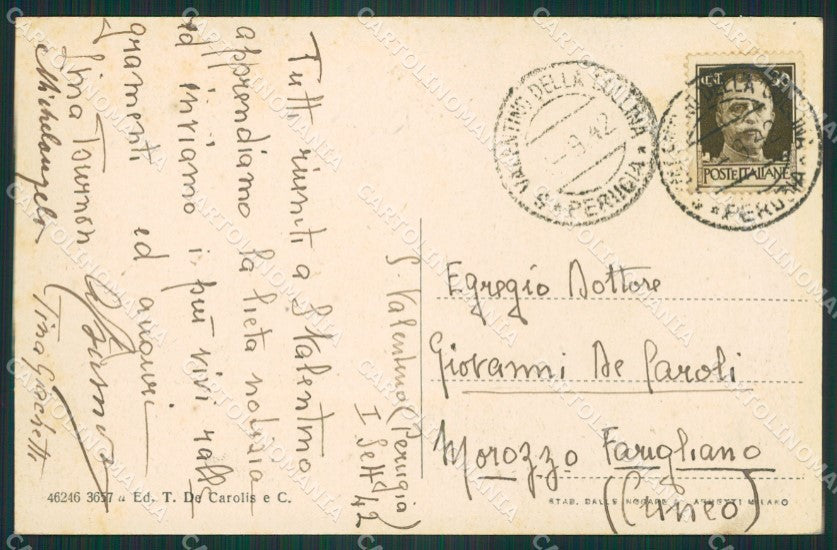 S. Valentino (Perugia)
I Sett. 42
Tutti riuniti a S. Valentino
apprendiamo la lieta notizia
ed inviamo i più vivi ralle
gramenti ed auguri
Lina Tournon
Michelangelo Tina Grechetti
Egregio Dottore
Giovanni De Caroli
Morozzo Farigliano
(Cuneo)
S. VALENTINO DELLA COLLINA
* PERUGIA *
9.42
POSTE ITALIANE
PERUGIA
46246 3657 a Ed. T. De Carolis e C.
STAB. DALLE NOGARE E ARMETTI MILANO
CARTOLINOMANIA